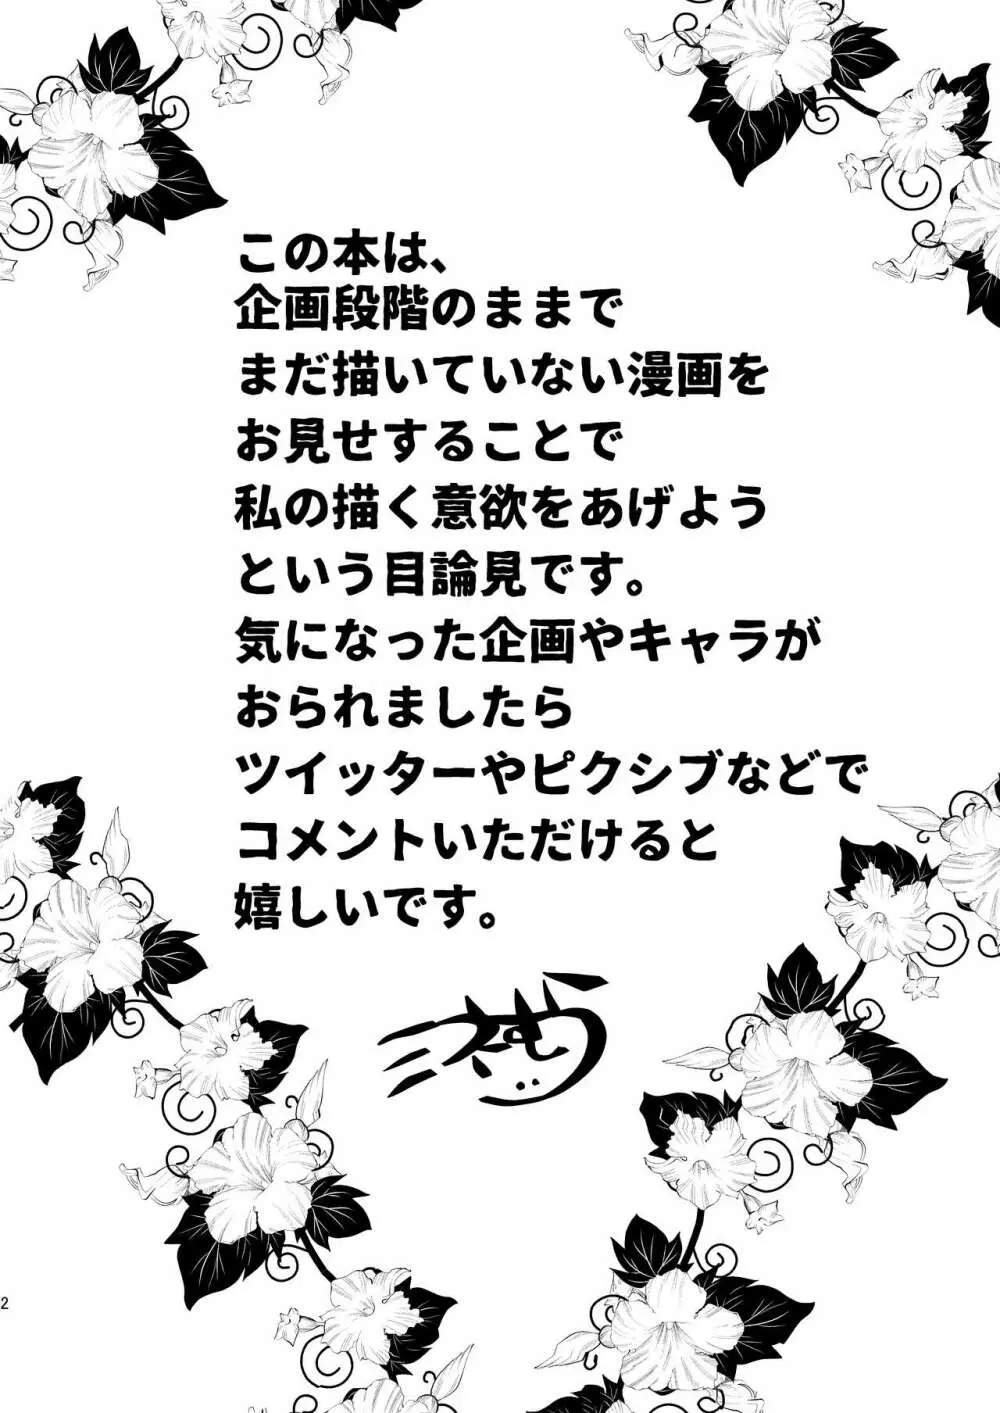 この本は、
企画段階のままで
まだ描いていない漫画を
お見せすることで
私の描く意欲をあげよう
という目論見です。
気になった企画やキャラが
おられましたら
ツイッターやピクシブなどで
コメントいただけると
嬉しいです。
2